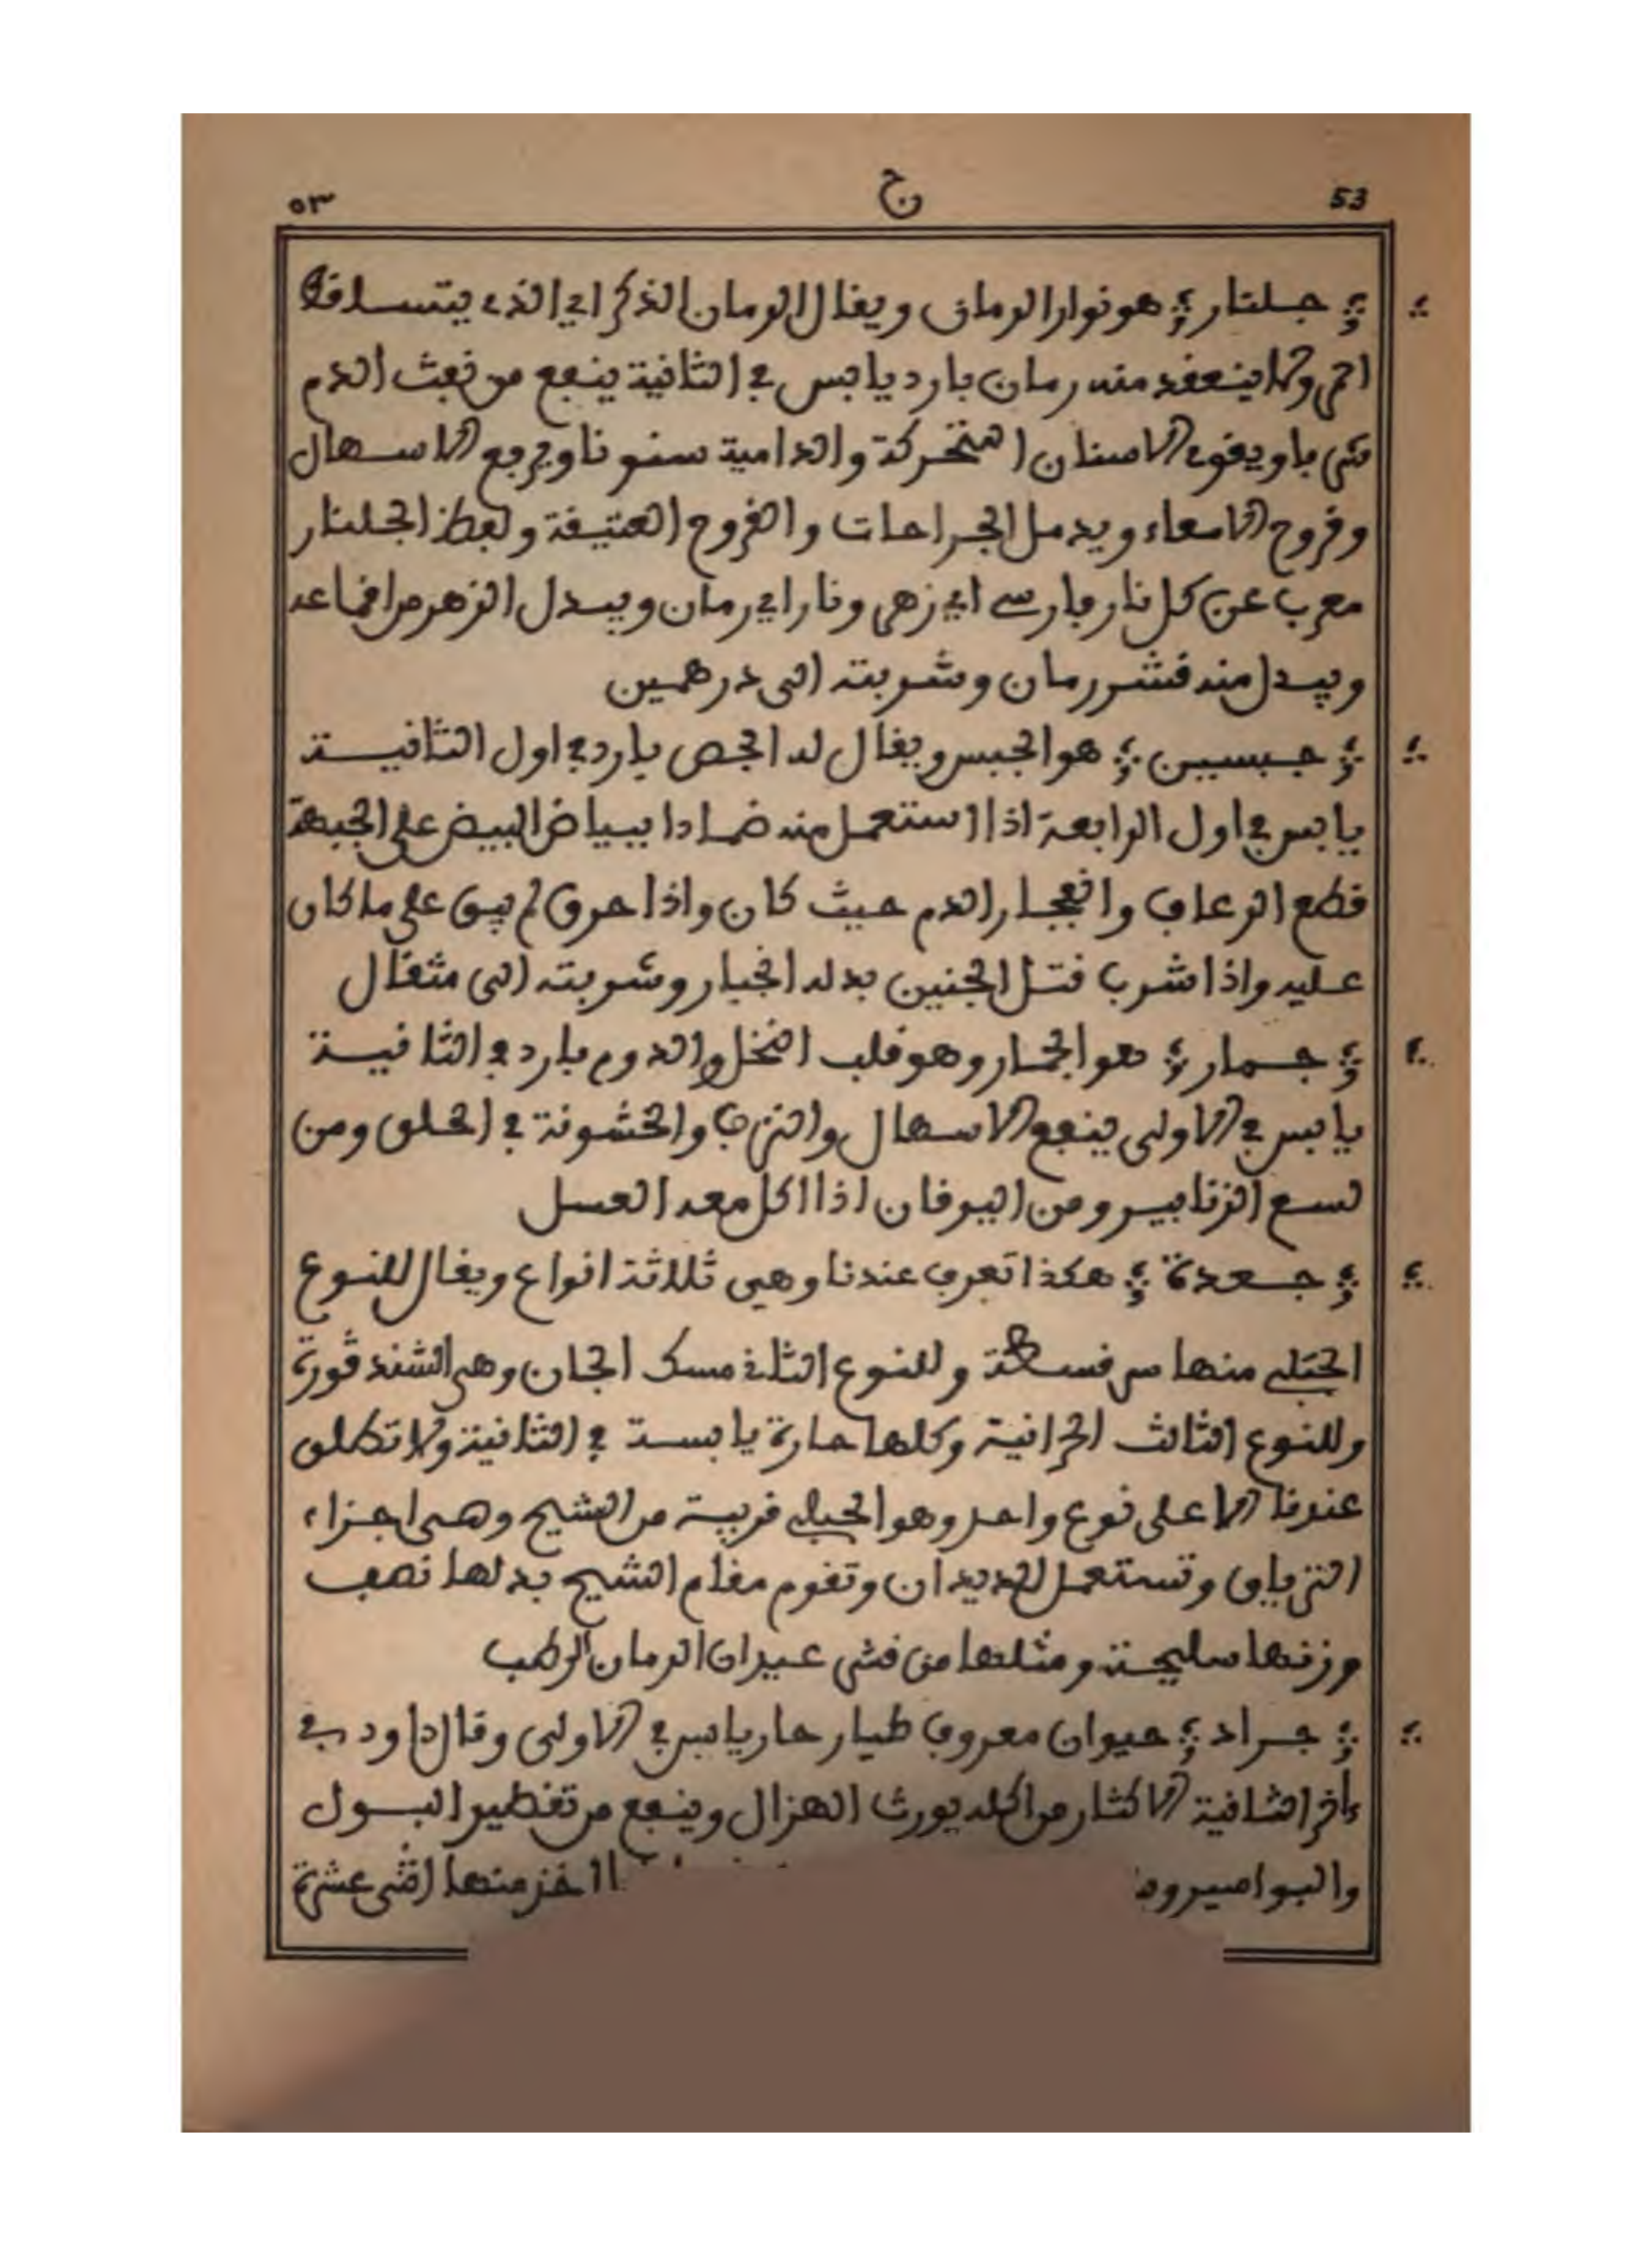 53 ج ٥٣
جلنار هو نوار الرمان ويقال الرمان الذكر اي الذي يتساقط
احمر ولا ينعقد منه رمان بارد يابس في الثانية ينفع من نفث الدم
شربا ويقوي الاسنان المتحركة والدامية سنونا ويرجع الاسهال
وقروح الامعاء ويدمل الجراحات والقروح العتيقة ولفظ الجلنار
معرب عن كل نار فارسي اي زهر ونار اي رمان ويبدل الزهر من اقماعه
ويبدل منه قشر رمان وشربته الى درهمين
جبسين هو الجبس ويقال له الجص بارد في اول الثانية
يابس في اول الرابعة اذا استعمل منه ضمادا ببياض البيض على الجبهة
قطع الرعاف وانفجار الدم حيث كان واذا حرق لم يبق على ما كان
عليه واذا شرب قتل الجنين بدله انجبار وشربته الى مثقال
جمار هو الجمار وهو قلب النخل والدوم بارد في الثانية
يابس في الاولى ينفع الاسهال والنزف والخشونة في الحلق ومن
لسع الزنابير ومن اليرقان اذا اكل معه العسل
جعدة هكذا تعرف عندنا وهي ثلاثة انواع ويقال للنوع
الجبلي منها وللنوع الثاني مسك الجان وهي الشندڤورة
وللنوع الثالث الحرانية وكلها حارة يابسة في الثانية ولا تطلق
عندنا الا على نوع واحد وهو الجبلي قريبة من الشيح وهي اجزاء
الترياق وتستعمل للديدان وتقوم مقام الشيح بدلها نصف
وزنها سليخة ومثلها من قشر عيدان الرمان الرطب
جراد حيوان معروف طيار حار يابس في الاولى وقال داود في
ءاخر الثانية الاكثار من اكله يورث الهزال وينفع من تقطير البول
والبواسير منها اثنى عشرة